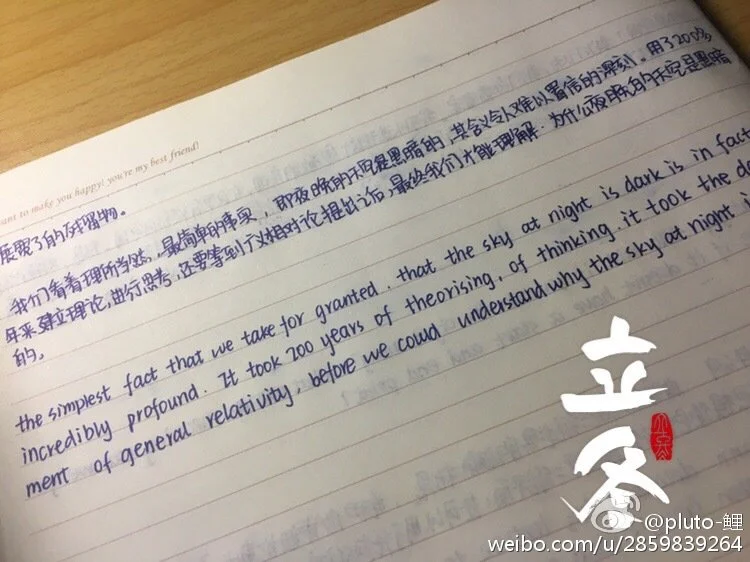 ant to make you happy! you're my best friend!
展覧了的残留物。
我们看着理所当然，最简单的事实，即夜晚的天空是黑暗的，其含义令人难以置信的深刻。用了200多
年来建立理论，进行思考，还要等到广义相对论提出之后，最终我们才能理解，为什么夜晚的天空是黑暗
的。
the simplest fact that we take for granted. that the sky at night is dark is in fact
incredibly profound. It took 200 years of theorising, of thinking. it took the de
ment of general relativity, before we could understand why the sky at night i
立冬
@pluto-鲤
weibo.com/u/2859839264